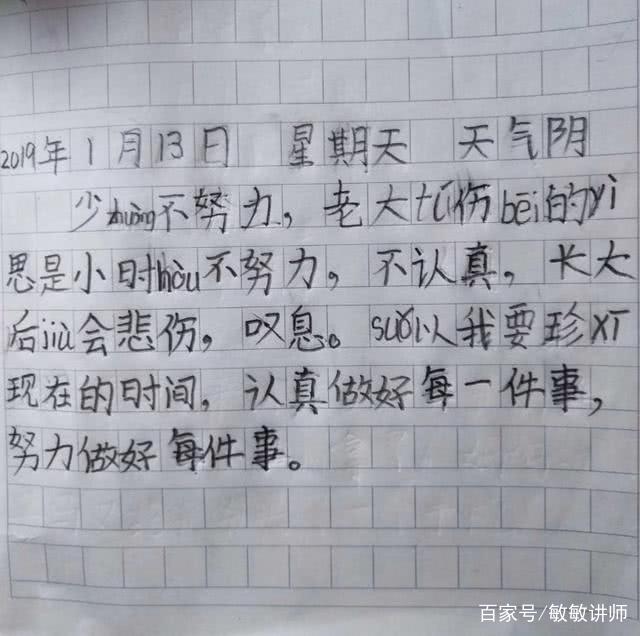 2019年1月13日 星期天 天气阴
少zhuàng不努力，老大tú伤bēi的yì
思是小时hòu不努力，不认真，长大
后jiù会悲伤，叹息。suǒ以我要珍xī
现在的时间，认真做好每一件事，
努力做好每件事。
百家号/敏敏讲师